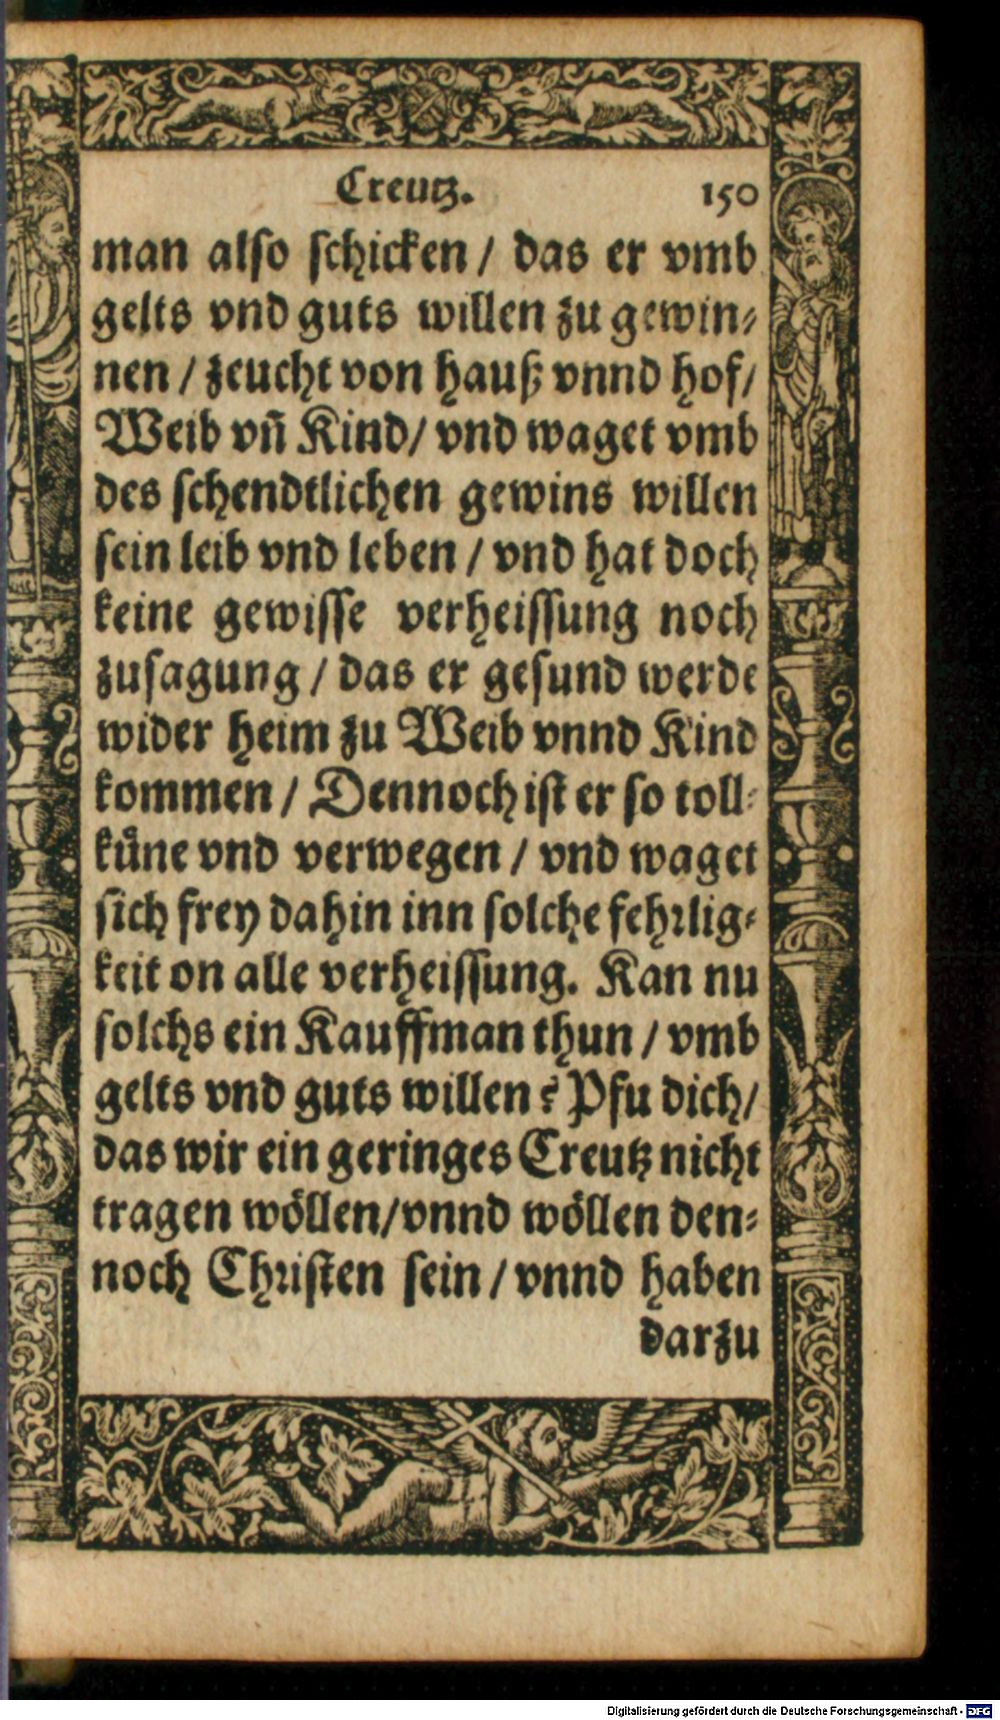 Creutz. 150
man also schicken / das er vmb
gelts vnd guts willen zu gewin⸗
nen / zeucht von hauß vnnd hof/
Weib vñ Kind/ vnd waget vmb
des schendtlichen gewins willen
sein leib vnd leben / vnd hat doch
keine gewisse verheissung noch
zusagung / das er gesund werde
wider heim zu Weib vnnd Kind
kommen / Dennoch ist er so toll⸗
kuͤne vnd verwegen / vnd waget
sich frey dahin inn solche fehrlig⸗
keit on alle verheissung. Kan nu
solchs ein Kauffman thun / vmb
gelts vnd guts willen? Pfu dich/
das wir ein geringes Creutz nicht
tragen woͤllen/vnnd woͤllen den⸗
noch Christen sein / vnnd haben
darzu
Digitalisierung gefördert durch die Deutsche Forschungsgemeinschaft - DFG